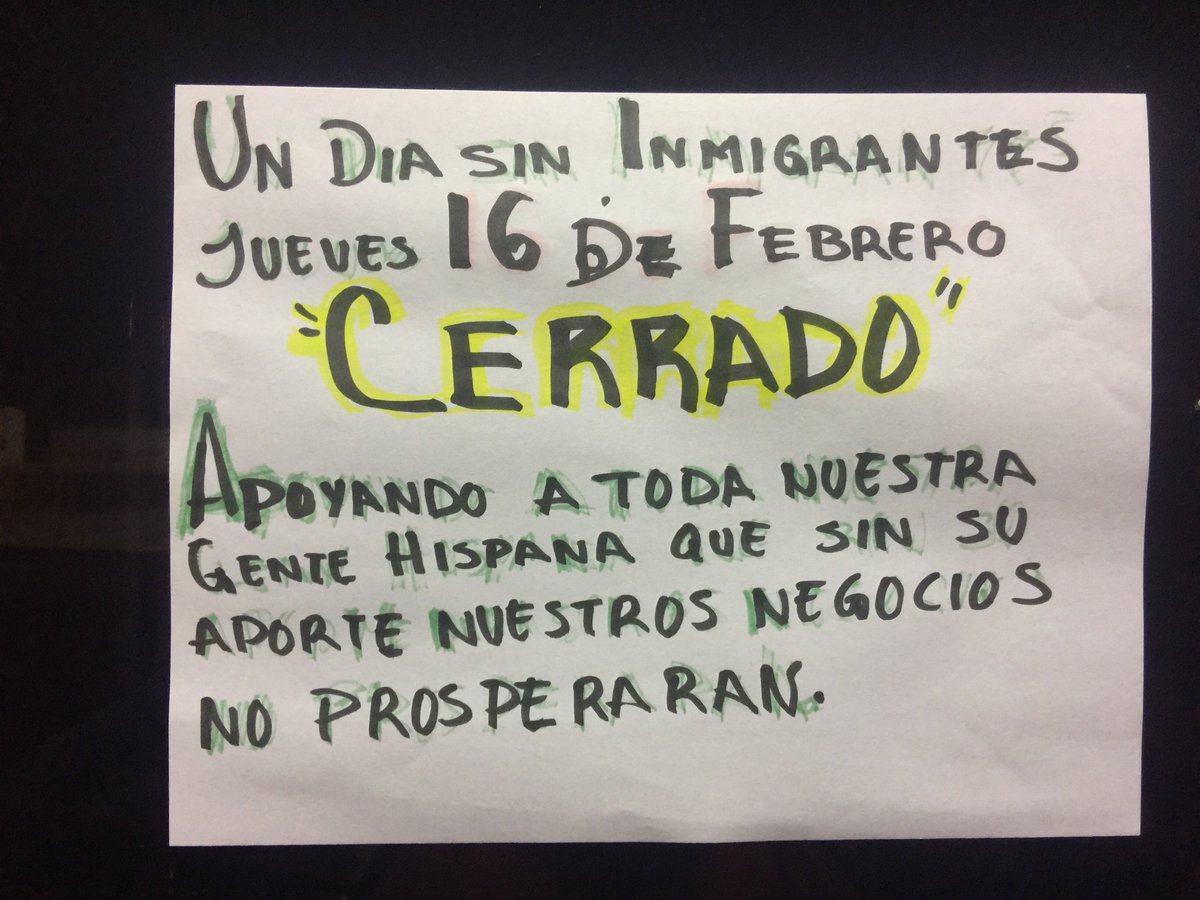 UN DIA SIN INMIGRANTES
JUEVES 16 DE FEBRERO
"CERRADO"
APOYANDO A TODA NUESTRA
GENTE HISPANA QUE SIN SU
APORTE NUESTROS NEGOCIOS
NO PROSPERARAN.